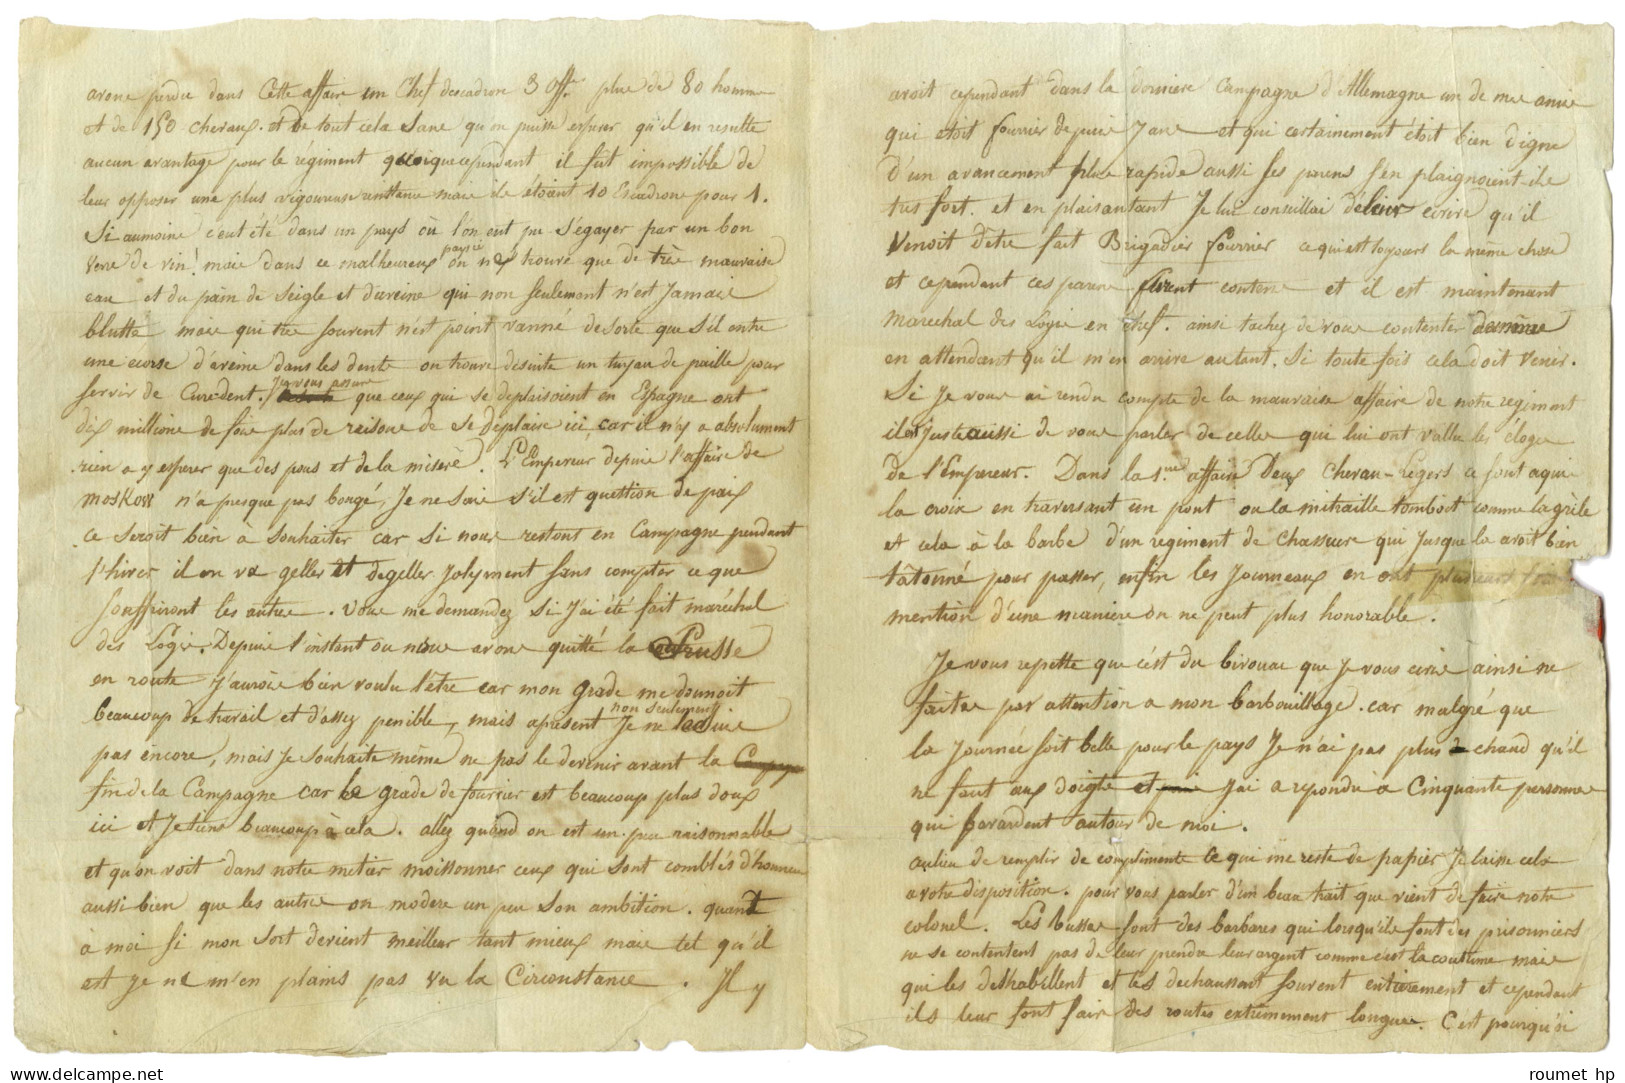 avons perdu dans Cette affaire un Chef descadron 3 Offr. plus de 80 hommes
et de 150 chevaux. et de tout cela sans qu'on puisse esperer qu'il en resulte
aucun avantage pour le régiment quoique cependant il fut impossible de
leur opposer une plus vigoureuse resistance mais ils étoient 10 Escadrons pour 1.
Si aumoins c'eut été dans un pays où l'on eut pu s'égayer par un bon
verre de vin! mais dans ce malheureux pays ci on ne trouve que de très mauvaise
eau et du pain de Seigle et d'aveine qui non seulement n'est Jamais
blutté mais qui tres souvent n'est point vanné desorte que s'il entre
une ecorse d'aveine dans les dents on trouve desuite un tuyau de paille pour
servir de Cure-dent. Je vous assure que ceux qui se deplaisoient en Espagne ont
dix millions de fois plus de raisons de se deplaire ici, car il n'y a absolument
rien a y esperer que des pous et de la miserè. L'Empereur depuis l'affaire de
Moskow n'a presque pas bougé, Je ne sais s'il est question de paix
ce seroit bien à Souhaiter car si nous restons en Campagne pendant
l'hiver il en va geller et degeller Jolyment sans compter ce que
souffriront les autres. Vous me demandez si J'ai été fait maréchal
des Logis. Depuis l'instant ou nous avons quitté la Prusse
en route J'aurois bien voulu l'être car mon grade me donnoit
beaucoup de travail et d'assez penible, mais apresent non seulement Je ne le suis
pas encore, mais Je souhaite même ne pas le devenir avant la
fin de la Campagne car le grade de fourrier est beaucoup plus doux
ici et Je tiens beaucoup à cela. allez quand on est un peu raisonnable
et qu'on voit dans notre metier moissonner ceux qui sont comblés d'honneur
aussi bien que les autres on modere un peu son ambition. quant
à moi si mon sort devient meilleur tant mieux mais tel qu'il
est je ne m'en plains pas vu la Circonstance. Il y
avoit cependant dans la derniere Campagne d'Allemagne un de mes amis
qui etoit fourrier depuis 7 ans et qui certainement étoit bien digne
d'un avancement plus rapide aussi ses parens s'en plaignoient-ils
tres fort. et en plaisantant Je lui conseillai de leur ecrire qu'il
Venoit d'être fait Brigadier fourrier ce qui est toujours la même chose
et cependant ces parens furent contens et il est maintenant
Marechal des Logis en chef. ainsi tachez de vous contenter demême
en attendant qu'il m'en arrive autant. Si toute fois cela doit venir.
Si Je vous ai rendu compte de la mauvaise affaire de notre regiment
il est juste aussi de vous parler de celles qui lui ont vallu les éloges
de l'Empereur. Dans la 1.ere affaire Deux Chevau-Légers ce sont aquis
la croix en traversant un pont ou la mitraille tomboit comme la grèle
et cela à la barbe d'un regiment de Chasseurs qui jusque la avoit bien
tâtonné pour passer, enfin les Journeaux en ont plusieurs fois
mention d'une maniere on ne peut plus honorable.
Je vous repette que c'est du bivouac que Je vous ecris ainsi ne
faites pas attention a mon barbouillage. car malgré que
la Journée soit belle pour le pays Je n'ai pas plus chaud qu'il
ne faut aux doigts J'ai a repondre à Cinquante personnes
qui bavardent autour de moi.
aulieu de remplir de complimente ce qui me reste de papier Je laisse cela
a votre disposition. pour vous parler d'un beau trait que vient de faire notre
colonel. Les Russes sont des barbares qui lorsqu'ils font des prisonniers
ne se contentent pas de leur prendre leur argent comme c'est la coustume mais
qui les deshabillent et les dechaussent souvent entierement et cependant
ils leur font faire des routes extremement longues. C'est pourquoi
roumet hp
www.delcampe.net